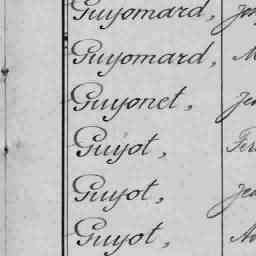 Guyomard,
Guyomard,
Guyonet,
Guyot,
Guyot,
Guyot,